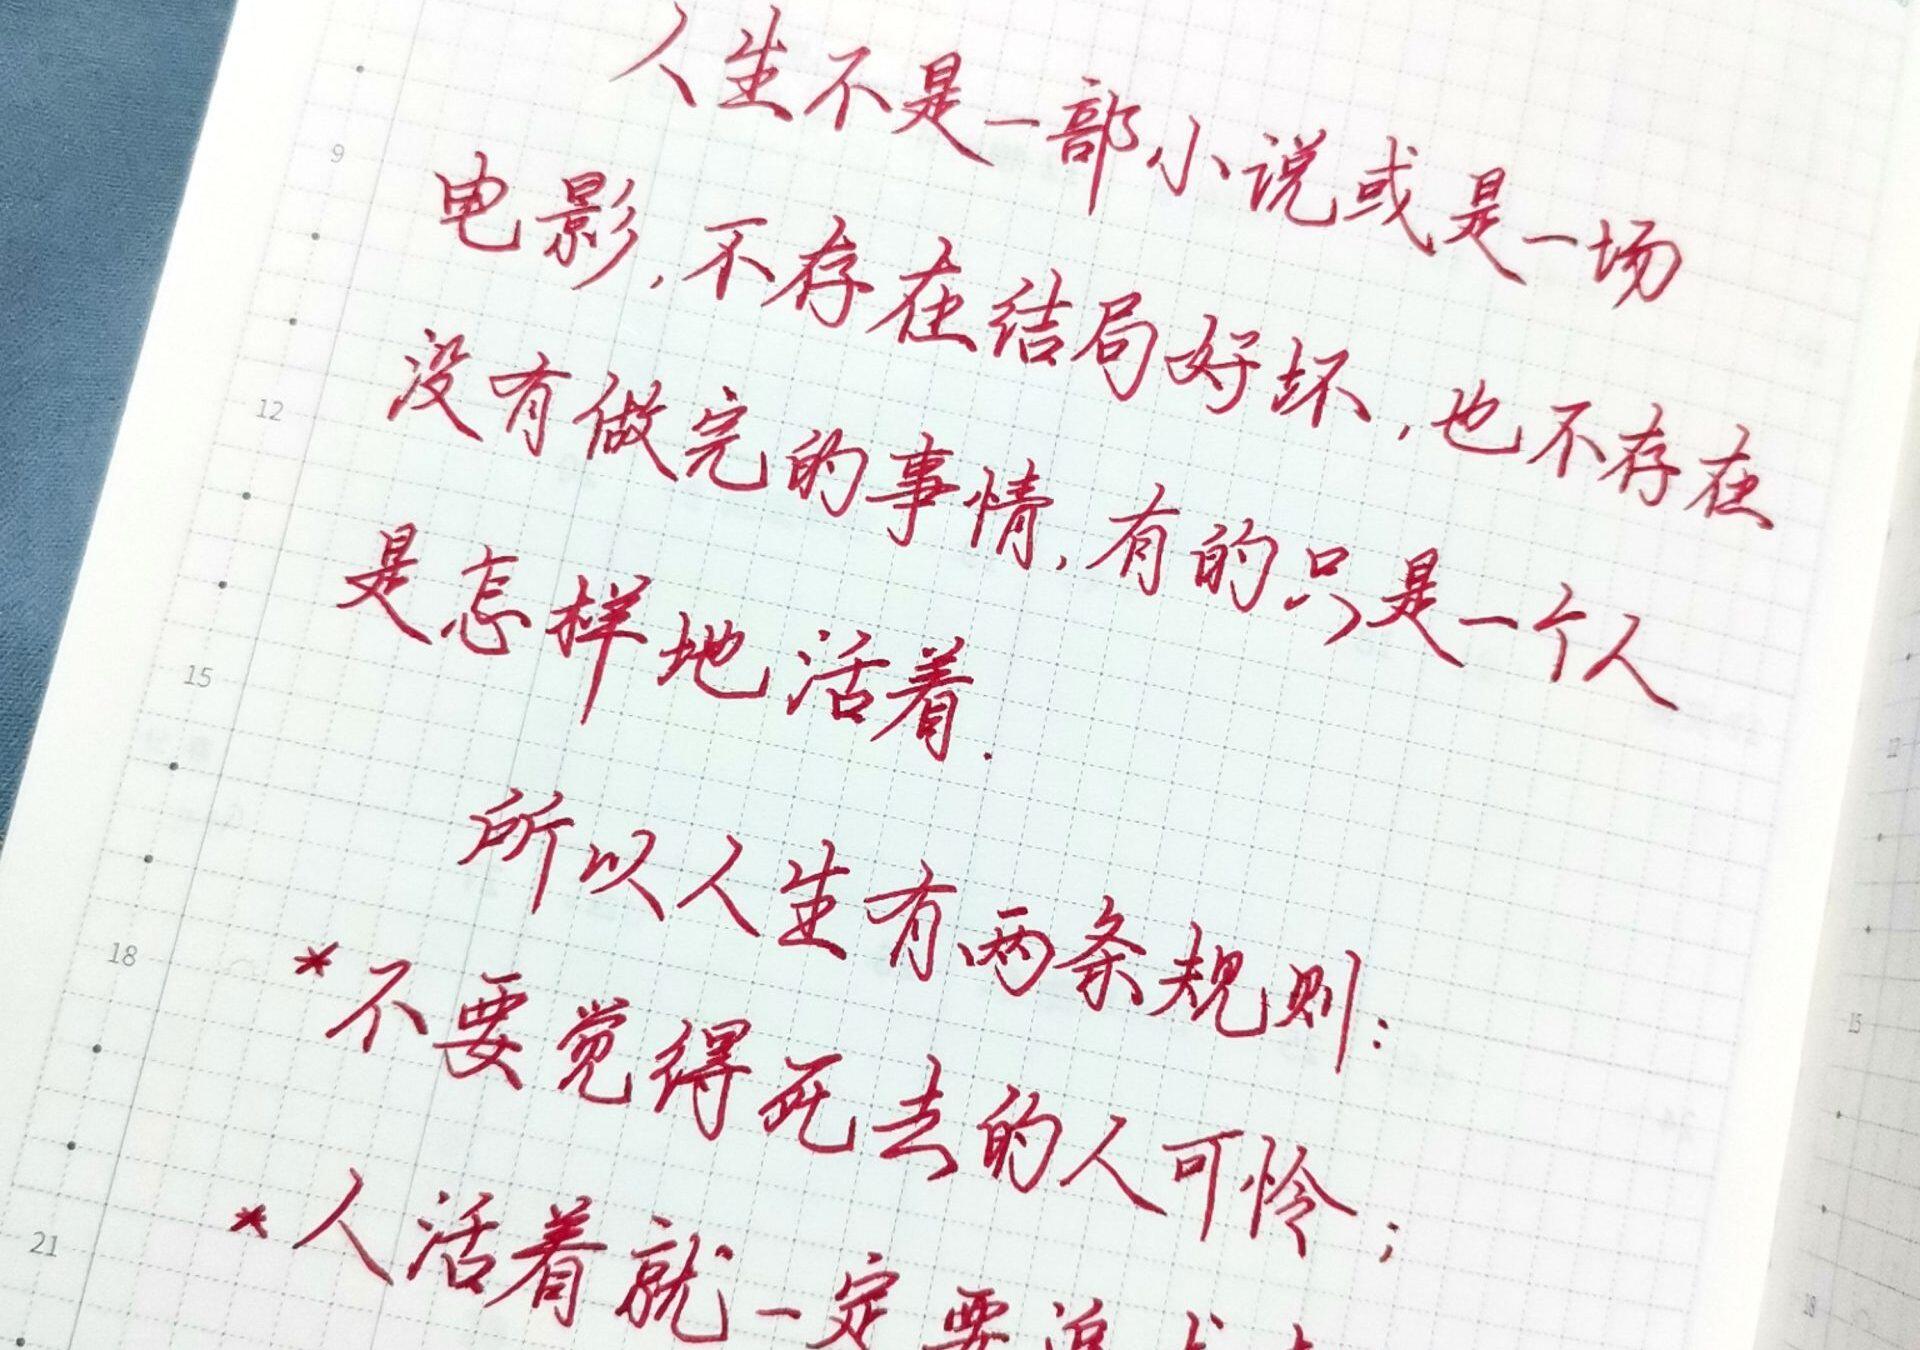 人生不是一部小说或是一场
电影,不存在结局好坏,也不存在
没有做完的事情,有的只是一个人
是怎样地活着.
所以人生有两条规则:
*不要觉得死去的人可怜;
*人活着就一定要追求
9
12
15
18
21
12
15
18